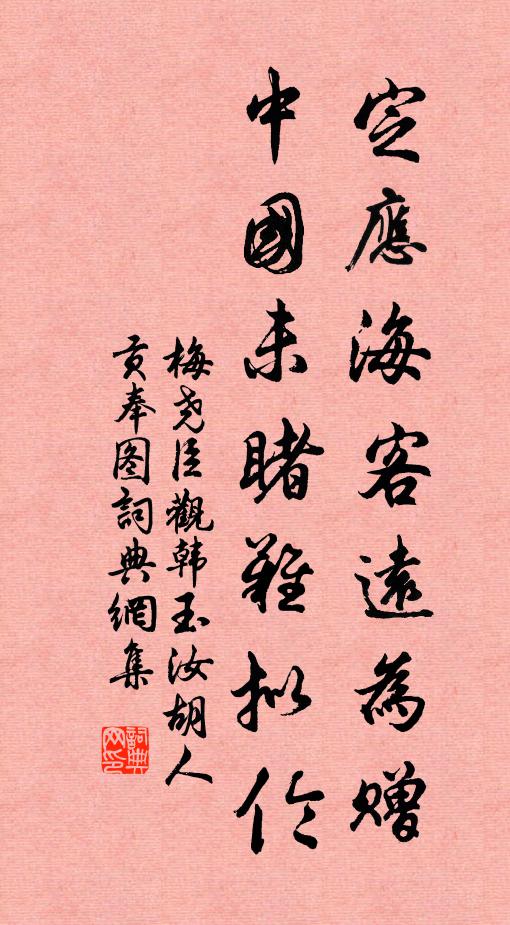 定應海客遠為贈
中國未睹難擬伦
梅尧臣觀韩玉汝胡人
贡奉图詞典網集
詞典网印